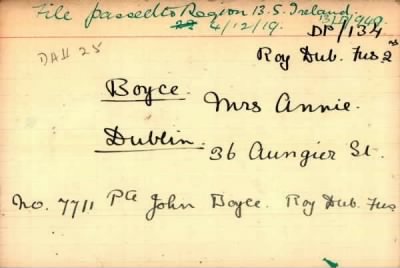 File passed to Region 13. S. Ireland.
4/12/19.
DP/134
DAII 25
Roy Dub. Fus 2
Boyce. Mrs Annie.
Dublin. 36 Aungier St.
No. 7711 Pte John Boyce. Roy Dub. Fus